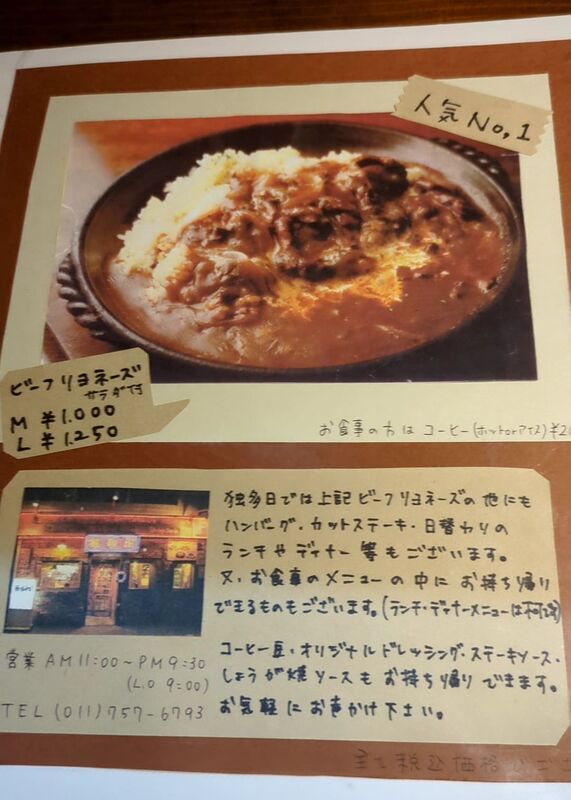 人気No,1
ビーフリヨネーズ
サラダ付
M ¥1.000
L ¥1.250
お食事の方は コーヒー(ホットorアイス)¥2
独多日では上記 ビーフリヨネーズの他にも
ハンバーグ・カットステーキ・日替わりの
ランチやディナー 等もございます。
又、お食事のメニューの中に お持ち帰り
できるものもございます。(ランチ・ディナーメニューは不可です)
コーヒー豆・オリジナルドレッシング・ステーキソース・
しょうが焼ソースも お持ち帰りできます。
お気軽に お声かけ下さい。
営業 AM 11:00〜PM 9:30
(L.O 9:00)
TEL (011)757-6793
全て税込価格